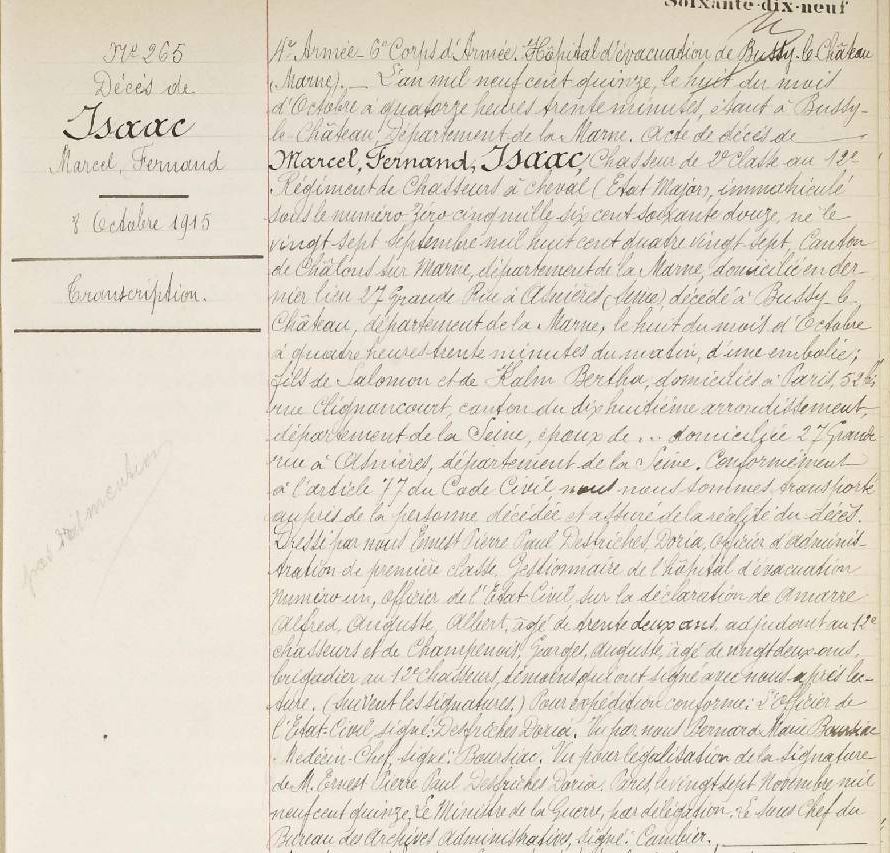 Soixante-dix-neuf
Nº 265
Décès de
Isaac
Marcel, Fernand
8 Octobre 1915
Transcription.
pas d'émention
4e Armée - 6e Corps d'Armée. Hôpital d'évacuation de Bussy-le-Château
(Marne). _ L'an mil neuf cent quinze, le huit du mois
d'Octobre à quatorze heures trente minutes, étant à Bussy-
le-Château, Département de la Marne. Acte de décès de
Marcel, Fernand, Isaac, Chasseur de 2e Classe au 12e
Régiment de Chasseurs à cheval (Etat Major), immatriculé
sous le numéro zéro cinq mille six cent soixante douze, né le
vingt-sept Septembre mil huit cent quatre vingt sept, Canton
de Châlons sur Marne, département de la Marne, domicilié en der-
nier lieu 27 Grande Rue à Asnières (Seine) décédé à Bussy-le-
Château, département de la Marne, le huit du mois d'Octobre
à quatre heures trente minutes du matin, d'une embolie;
fils de Salomon et de Kalm Bertha, domiciliés à Paris, 52 bis,
rue Clignancourt, canton du dix huitième arrondissement,
département de la Seine, époux de ... domiciliée 27 Grande
rue à Asnières, département de la Seine. Conformément
à l'article 77 du Code Civil nous nous sommes transporté
auprès de la personne décédée et assuré de la réalité du décès.
Dressé par nous Ernest Pierre Paul Desfriches Doria, Officier d'adminis-
tration de première classe, Gestionnaire de l'hôpital d'évacuation
numéro un, Officier de l'Etat Civil, sur la déclaration de Amarre
Alfred, Auguste, Albert, âgé de trente deux ans, adjudant au 12e
chasseurs et de Champenois, Georges, Auguste, âgé de vingt deux ans,
brigadier au 12e Chasseurs, témoins qui ont signé avec nous après lec-
ture. (Suivent les signatures.) Pour expédition conforme: L'Officier de
l'Etat-Civil, signé: Desfriches Doria. Vu par nous Bernard Marie Boursiac
Médecin-Chef, signé: Boursiac. Vu pour légalisation de la signature
de M. Ernest Pierre Paul Desfriches Doria, Paris, le vingt sept Novembre mil
neuf cent quinze, Le Ministre de la Guerre, par délégation. Le Sous Chef du
Bureau des Archives Administratives, signé: Cambier.